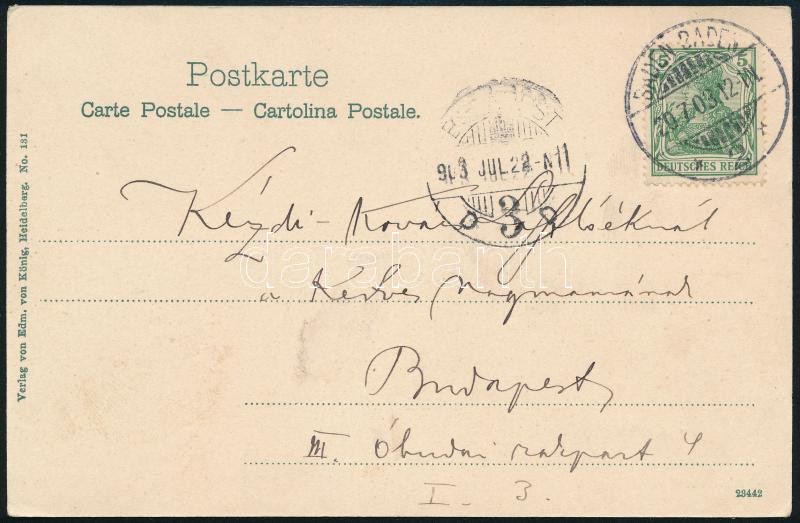 Postkarte
Carte Postale — Cartolina Postale.
BADEN-BADEN
20.7.03.12-1N.
* 2 *
5
DEUTSCHES REICH
BUDAPEST
903 JUL 22 - N 11
3
Kézdi-Kovács
a Kedves nagymamának
Budapest
III. Óbudai rakpart 4
I. 3.
Verlag von Edm. von König, Heidelberg. No. 131
23442
darabanth